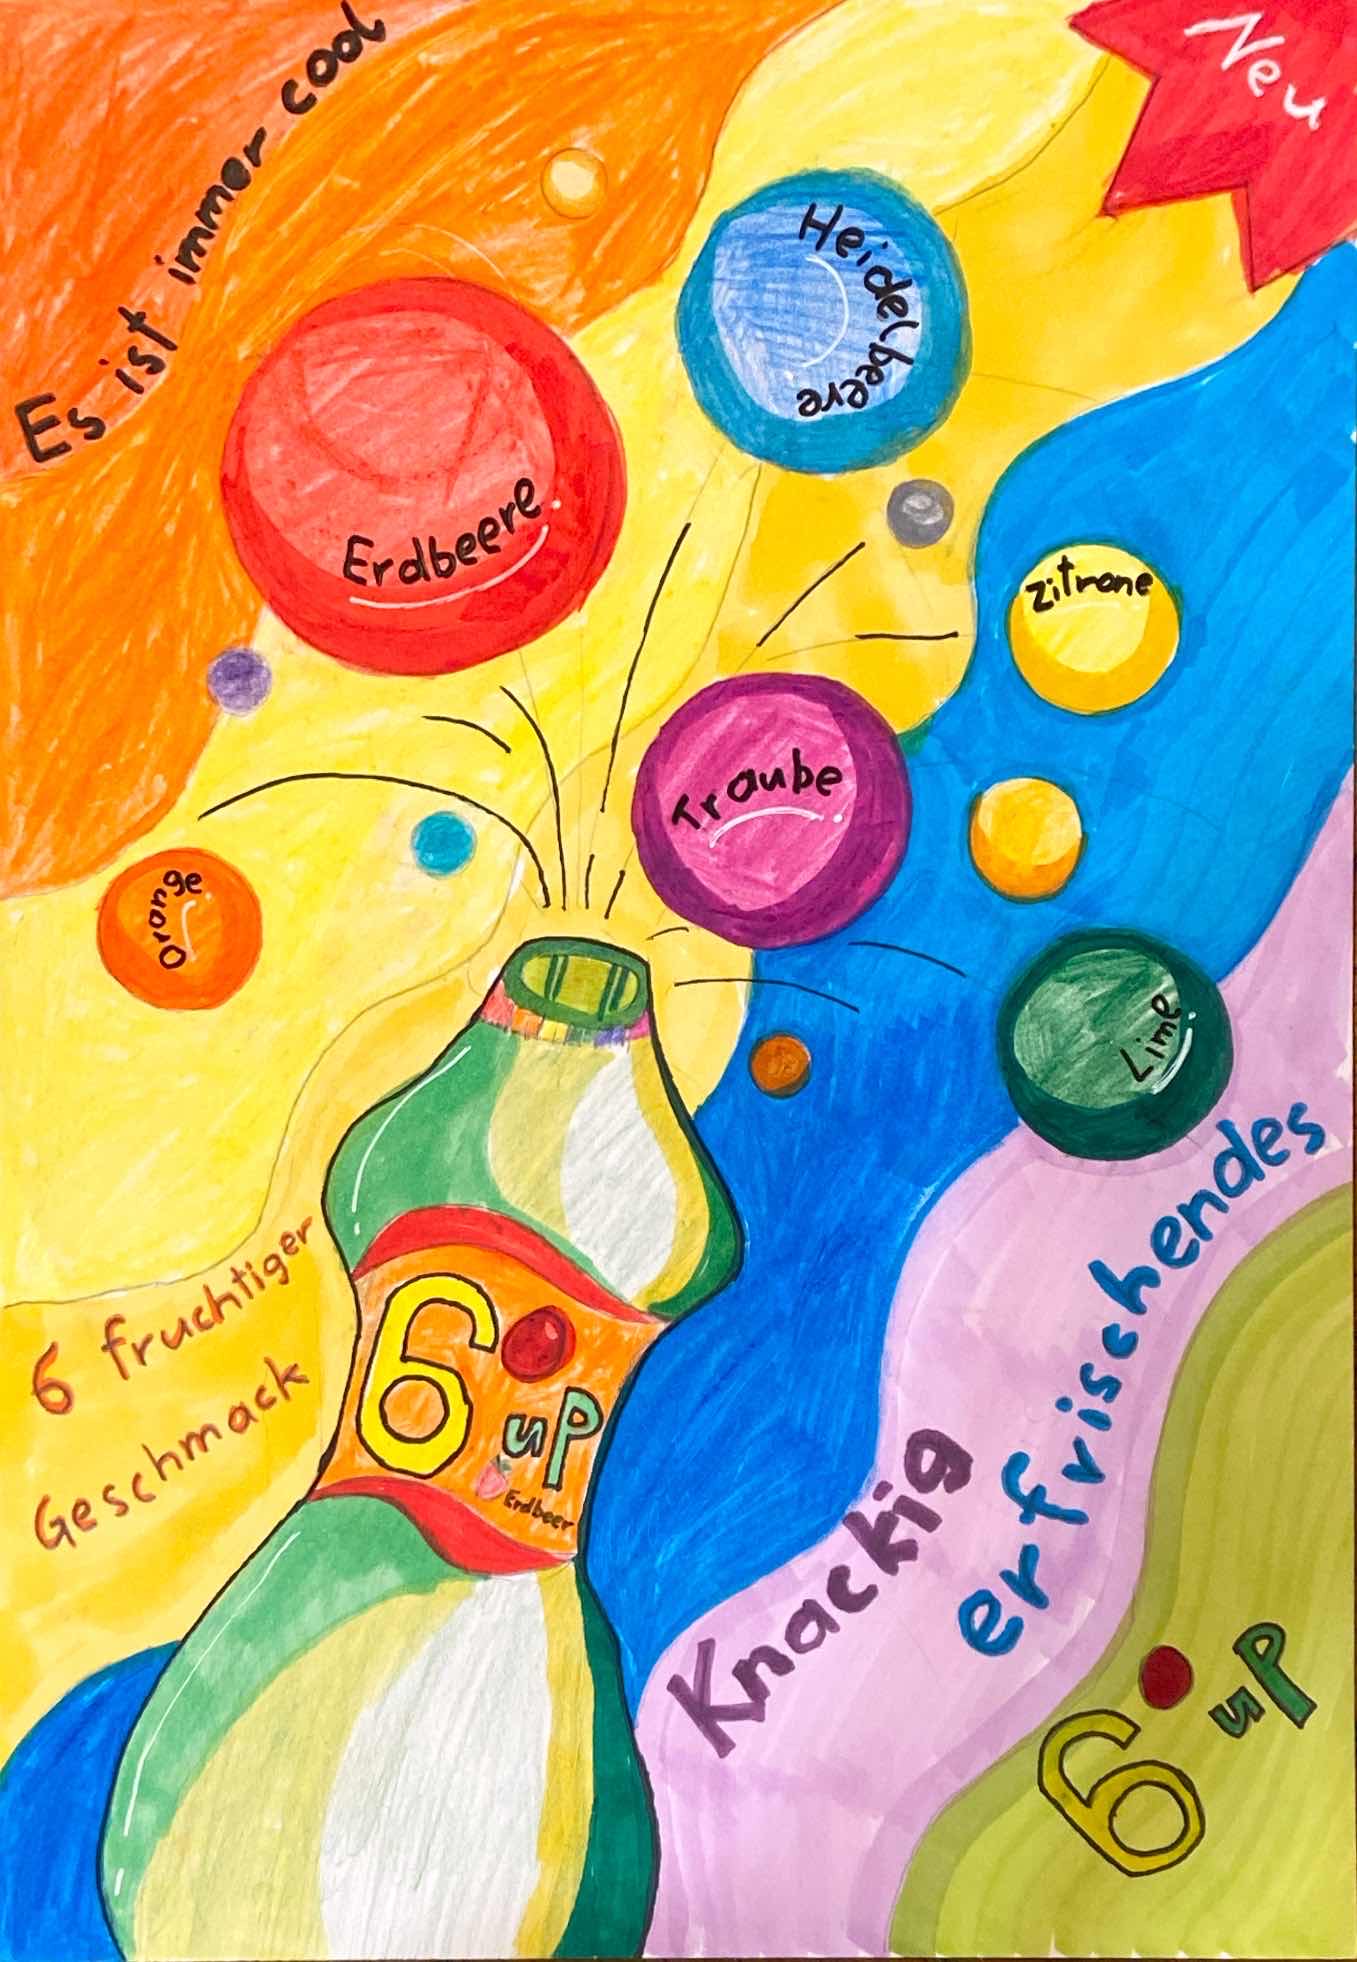 Neu
Es ist immer cool
Heidelbeere
Erdbeere
Zitrone
Traube
Orange
Lime
6 fruchtiger
Geschmack
6 up
Erdbeer
Knackig
erfrischendes
6 up